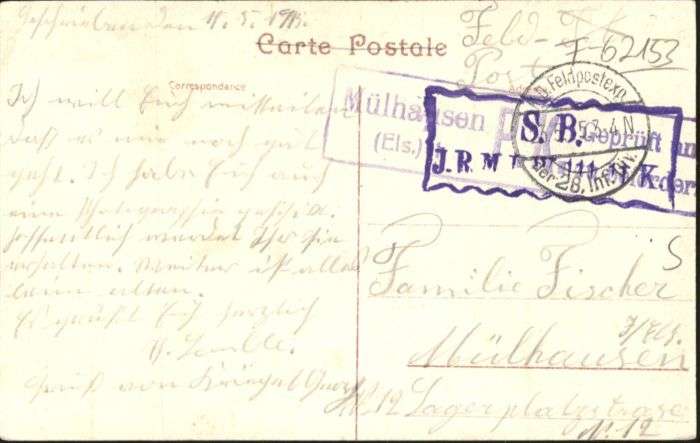 Geschrieben den 11. 5. 1915.
Carte Postale
Feld-
Post
F-62153
Correspondance
Ich will Euch mitteilen
daß es mir noch gut
geht. Ich habe Euch auch
eine Photographie geschickt.
hoffentlich werdet Ihr sie
erhalten. Weiter ist alles
beim alten.
Es grüßt Euch herzlich
Gruß von
Mülhausen
(Els.)
P.K.
Geprüft
S. B.
J.R.
K. D. Feldpostexp.
der 28. Inf. Div.
S
Familie Fischer
Mülhausen
i/Els.
Lagerplatzstrase
No 12